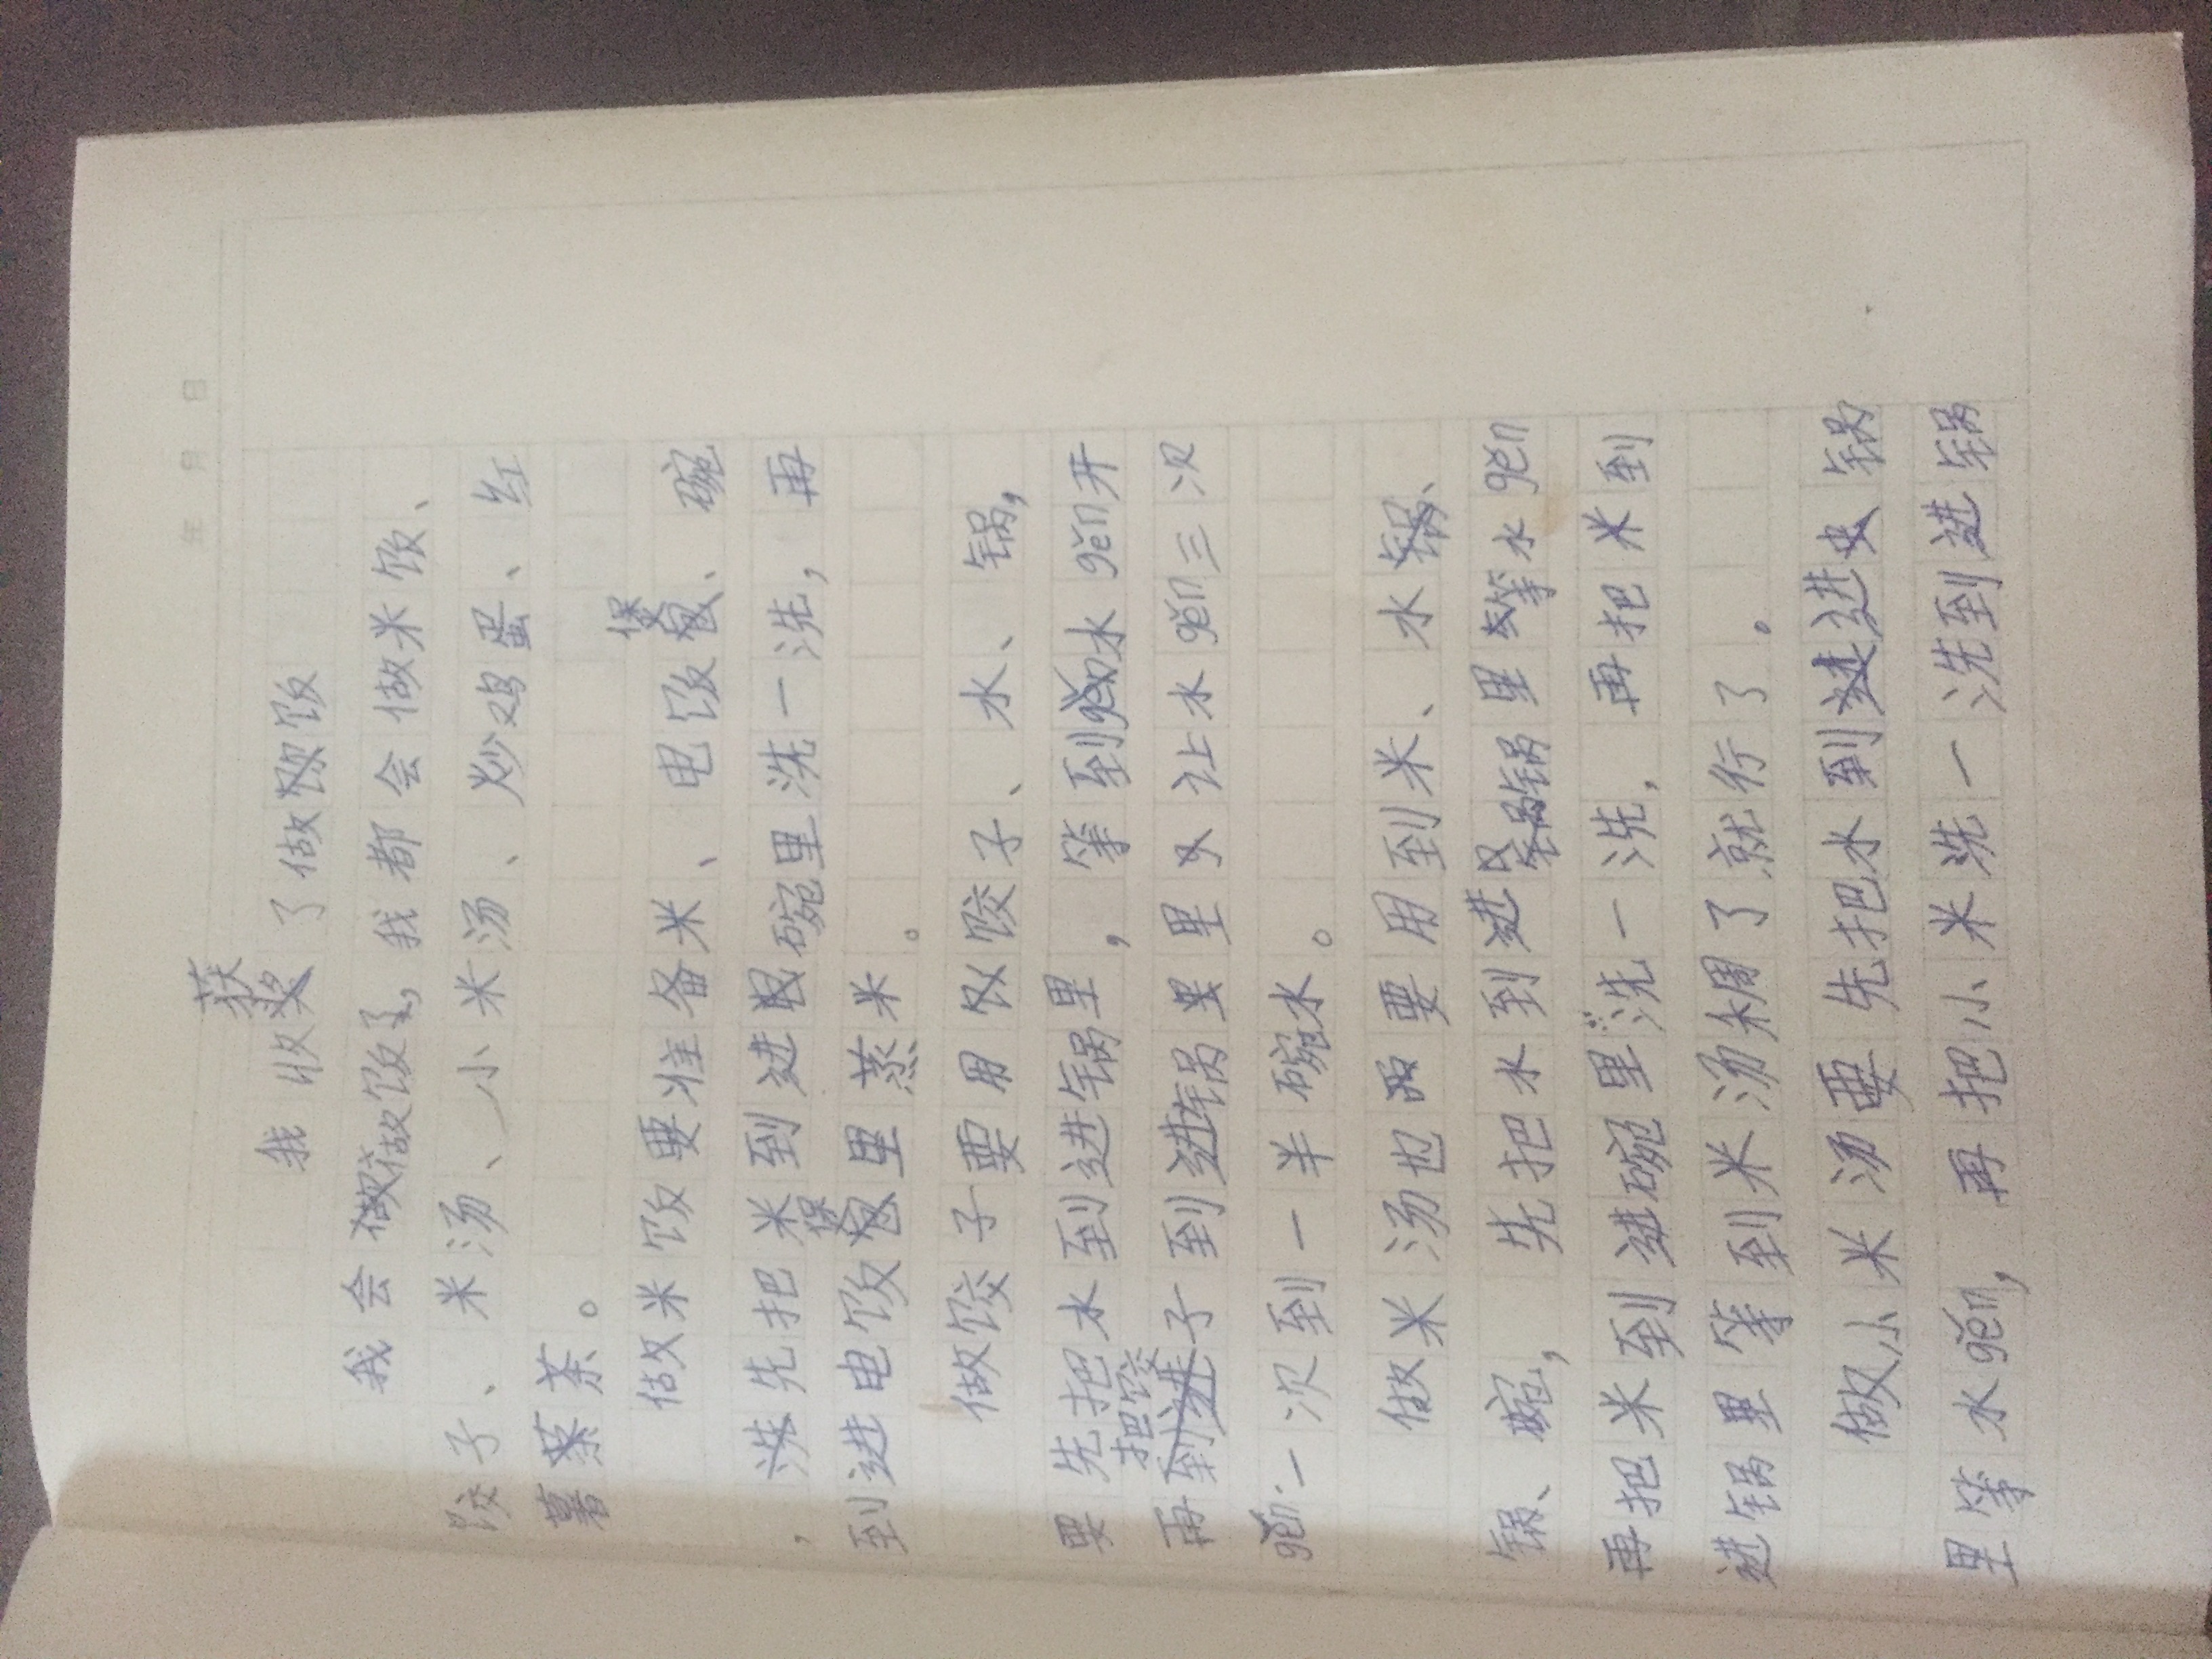 年 月 日
我收获了做饭
我会做饭了，我都会做米饭、
饺子、米汤、小米汤、炒鸡蛋、红
薯茶。
做米饭要准备米、电饭煲、碗
，先把米到进碗里洗一洗，再
到进电饭煲里蒸米。
做饺子要用饺子、水、锅，
要先把水到进锅里，等到水gěn开
再把饺子到进锅里又让水gěn三次
gěn一次到一半碗水。
做米汤也要用到米、水、
锅、碗，先把水到进锅里等水gěn
再把米到进碗里洗一洗，再把米到
进锅里等到米汤稠了就行了。
做小米汤要先把水到进锅
里等水gěn，再把小米洗一洗到进锅